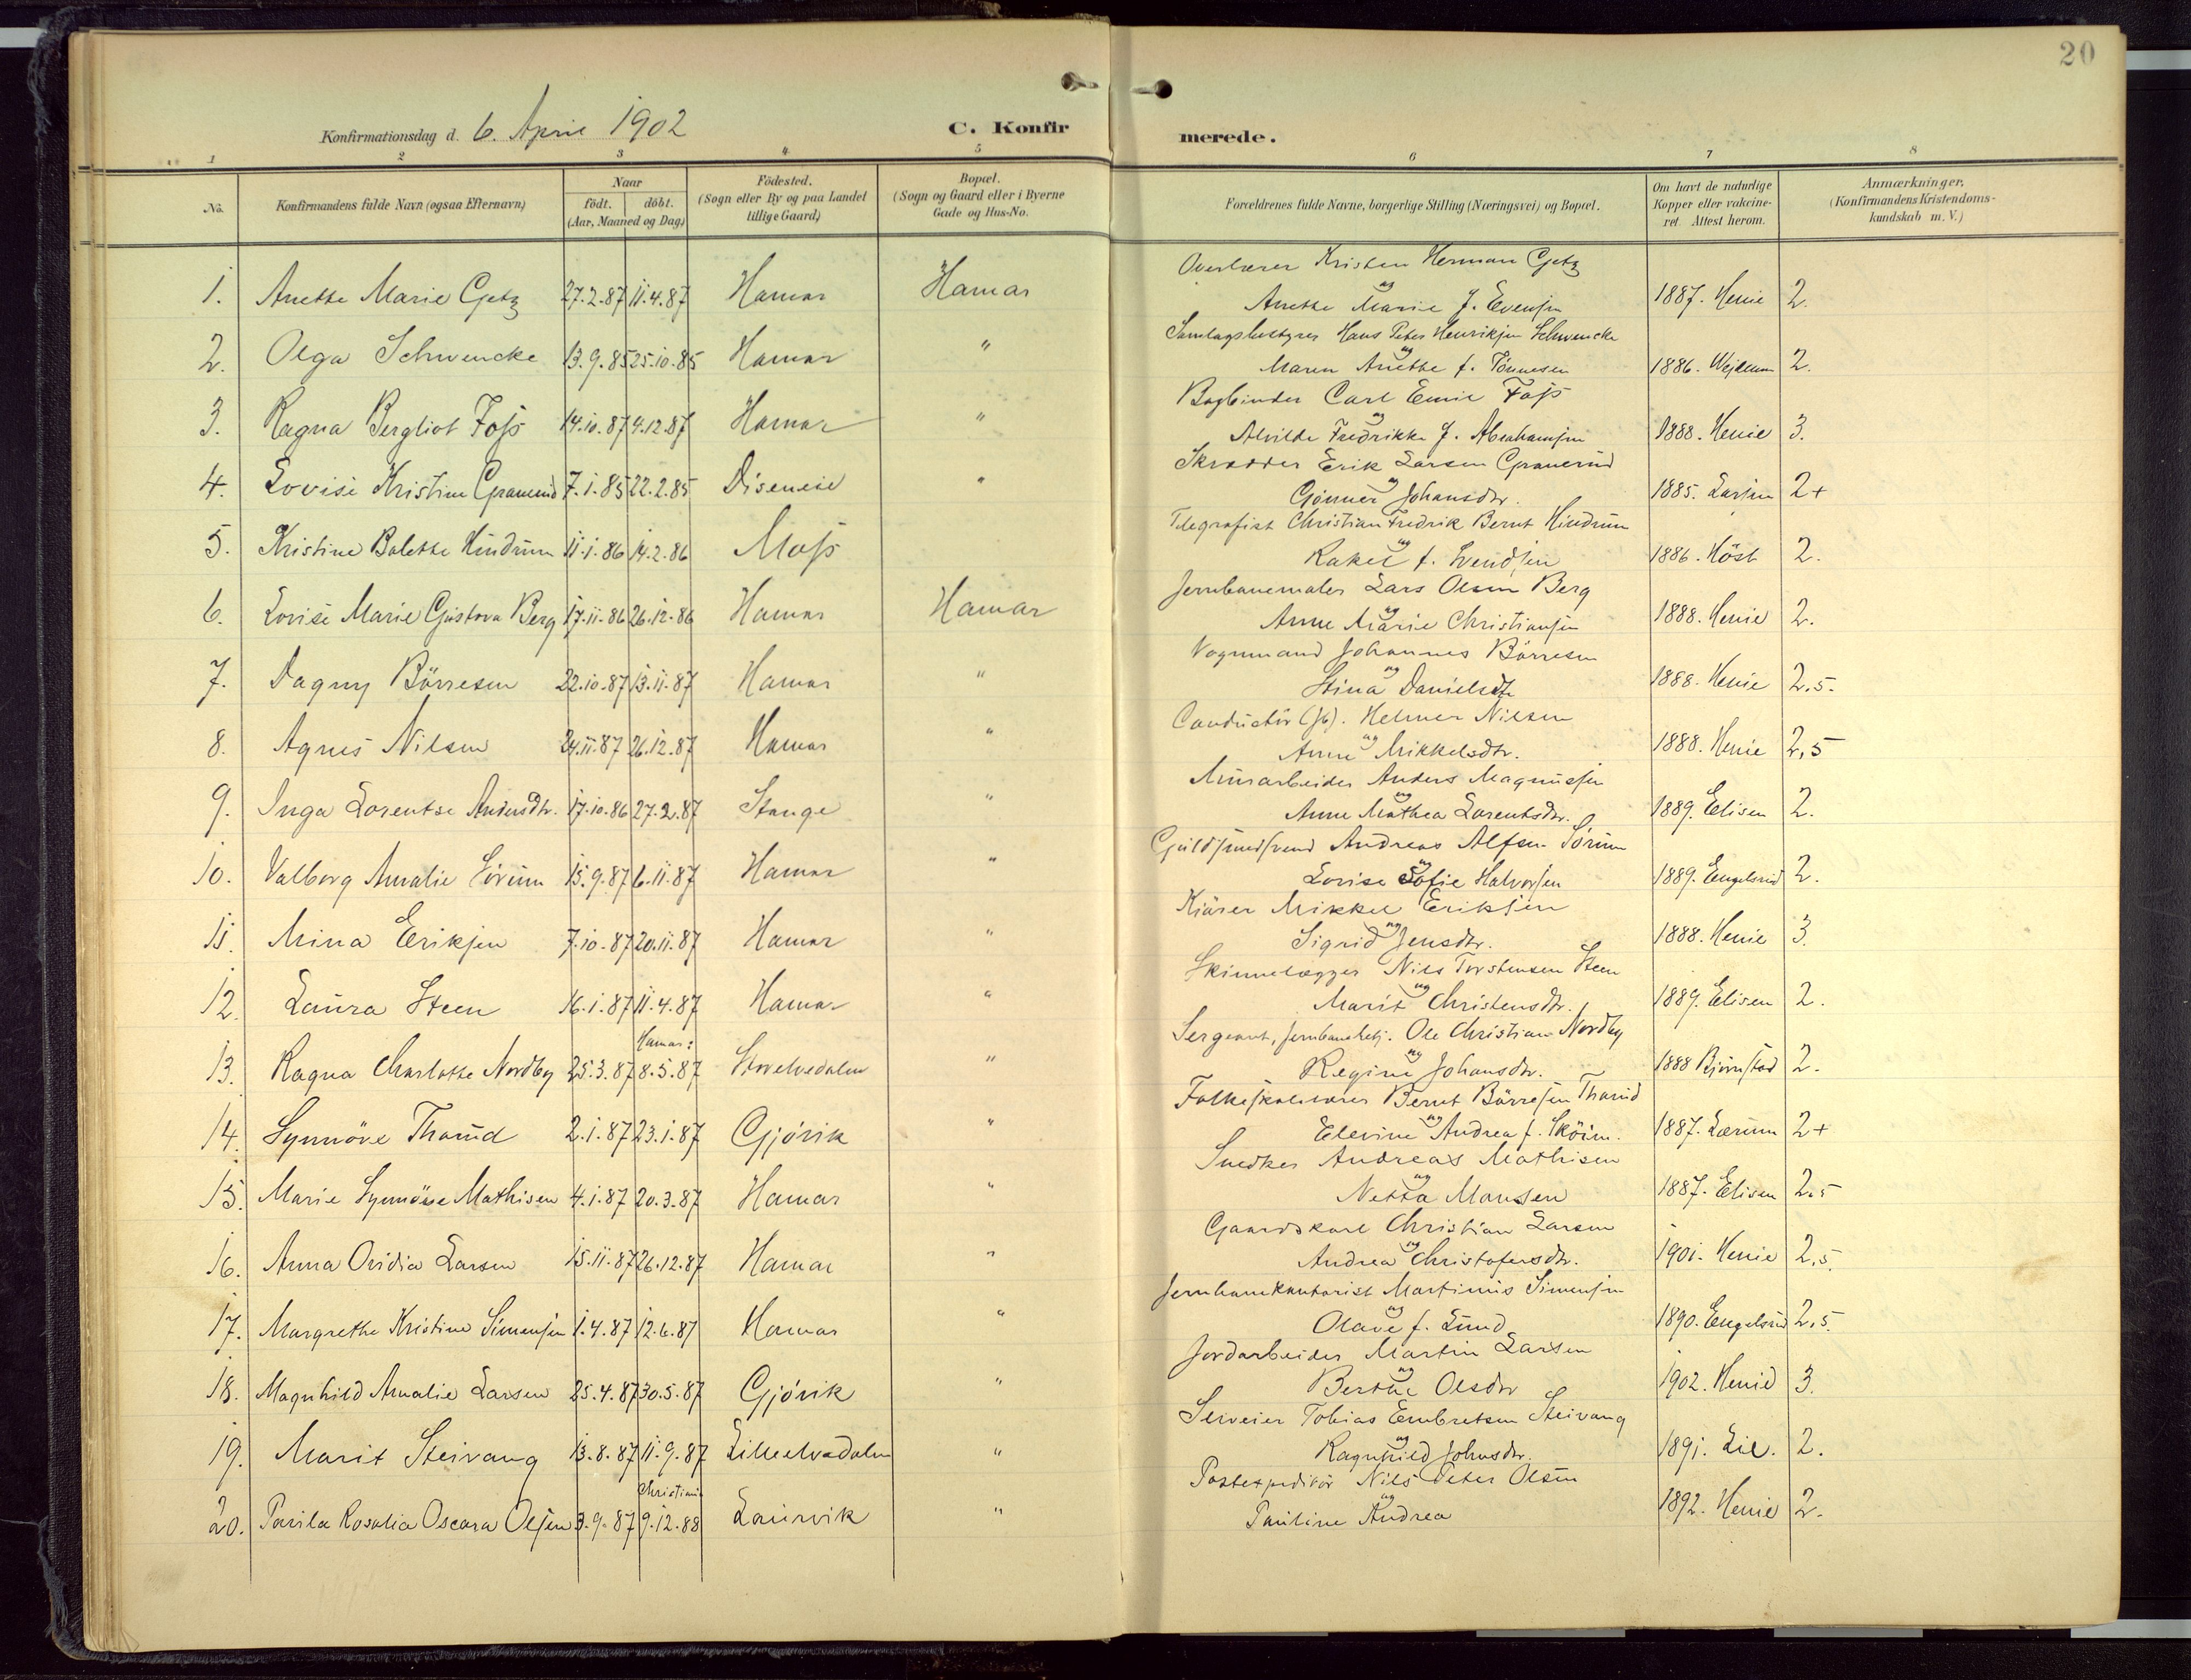 20
Konfirmationsdag d. 6. April 1902
C. Konfirmerede.
1 2 3 4 5 6 7 8
No.
Konfirmandens fulde Navn (ogsaa Efternavn)
Naar
födt. döbt.
(Aar, Maaned og Dag)
Födested.
(Sogn eller By og paa Landet
tillige Gaard)
Bopæl.
(Sogn og Gaard eller i Byerne
Gade og Hus-No.
Forældrenes fulde Navne, borgerlige Stilling (Næringsvei) og Bopæl.
Om havt de naturlige
Kopper eller vakcine-
ret. Attest herom.
Anmærkninger,
(Konfirmandens Kristendoms-
kundskab m. V.)
Overlærer Kristen Herman Getz
1. Anette Marie Getz 27.2.87 11.4.87 Hamar Hamar og Anette Marie f. Evensen 1887. Henie 2.
Samlagsbestyrer Hans Peter Henriksen Schwencke
2. Olga Schwencke 13.9.85 25.10.85 Hamar " og Maren Anette f. Tönnesen 1886. 2.
Bogbinder Carl Emil Foss
3. Ragna Bergliot Foss 14.10.87 4.12.87 Hamar " og Alvilde Fredrikke f. Abrahamsen 1888. Henie 3.
Skrædder Erik Larsen Granerud
4. Lovise Kristine Granerud 7.1.85 22.2.85 Diseneie " og Gunner Johansdtr. 1885. Larsen 2+
Telegrafist Christian Fredrik Bernt Hindrum
5. Kristine Bolette Hindrum 11.1.86 14.2.86 Moss og Rakel f. Svendsen 1886. Höst 2.
Jernbanemaler Lars Olsen Berg
6. Lovise Marie Gustava Berg 17.11.86 26.12.86 Hamar Hamar og Anne Marie Christiansen 1888. Henie 2.
Vognmand Johannes Börresen
7. Dagny Börresen 22.10.87 13.11.87 Hamar " og Stina Danielsdtr 1888. Henie 2,5.
Conductör (Jb). Helmer Nilsen
8. Agnes Nilsen 24.11.87 26.12.87 Hamar " og Anne Mikkelsdtr. 1888. Henie 2,5
Murarbeider Anders Magnussen
9. Inga Lorentse Andersdtr. 17.10.86 27.2.87 Stange " og Anne Mathea Lorentsdtr. 1889. Elisen 2.
Guldsmedsvend Andreas Alfsen Sörum
10. Valborg Amalie Sörum 15.9.87 6.11.87 Hamar " og Lovise Sofie Halvorsen 1889. Engelsrud 2.
Kjörer Mikkel Eriksen
11. Mina Eriksen 7.10.87 20.11.87 Hamar " og Sigrid Jensdtr. 1888. Henie 3.
Skinnelægger Nils Torstensen Steen
12. Laura Steen 16.1.87 11.4.87 Hamar " og Marit Christensdtr. 1889. Elisen 2.
Sergeant, Jernbanebetj. Ole Christian Nordby
Hamar:
13. Ragna Charlotte Nordby 25.3.87 8.5.87 Storelvedalen " og Regine Johansdtr. 1888 Björnstad 2.
Folkeskolelærer Bernt Börresen Tharud
14. Synnöve Tharud 2.1.87 23.1.87 Gjövik " og Elevine Andrea f. Sköien. 1887. Lærum 2+
Snedker Andreas Mathisen
15. Marie Synnöve Mathisen 4.1.87 20.3.87 Hamar " og Netta Monsen 1887. Elisen 2,5
Gaardskarl Christian Larsen
16. Anna Ovidia Larsen 15.11.87 26.12.87 Hamar " og Andrea Christofersdtr. 1901. Henie 2,5.
Jernbanekontorist Martinius Simensen
17. Margrethe Kristine Simensen 1.4.87 12.6.87 Hamar " og Olave f. Lund 1890. Engelsrud 2,5.
Jordarbeider Martin Larsen
18. Magnhild Amalie Larsen 25.4.87 30.5.87 Gjövik " og Berthe Olsdtr 1902. Henie 3.
Tobias Embretsen Steivang
19. Marit Steivang 13.8.87 11.9.87 Lilleelvedalen " og Ragnhild Johnsdtr. 1891. Lie. 2.
Postexpeditör Nils Peter Olsen
Christiania
20. Paula Rosalia Oscara Olsen 3.9.87 9.12.88 Laurvik " og Pauline Andrea 1892. Henie 2.